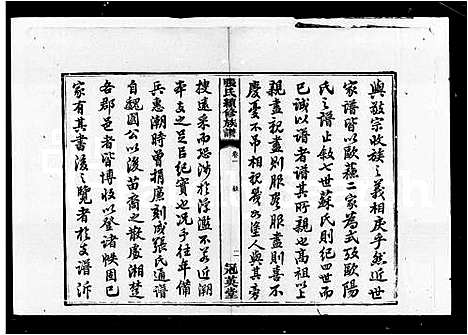 與敬宗收族之義相戾乎然近世
家譜皆以歐蘇二家為式攷歐陽
氏之譜止敘七世蘇氏則紀四世而
已誠以譜者譜其所親也高祖以上
親盡親盡則服盡服盡則喜不
慶憂不弔相視幾如塗人與其旁
張氏續修族譜
卷一
二
冠英堂
搜遠采而恐涉於浮濫不若近溯
本支之足昌紀實也況年備
兵惠潮時曾捐廉刻成張氏通譜
自魏國公以後苗裔之散處湘楚
各郡邑者皆博收以登諸帙固已
家有其書後之覽者於支譜泝